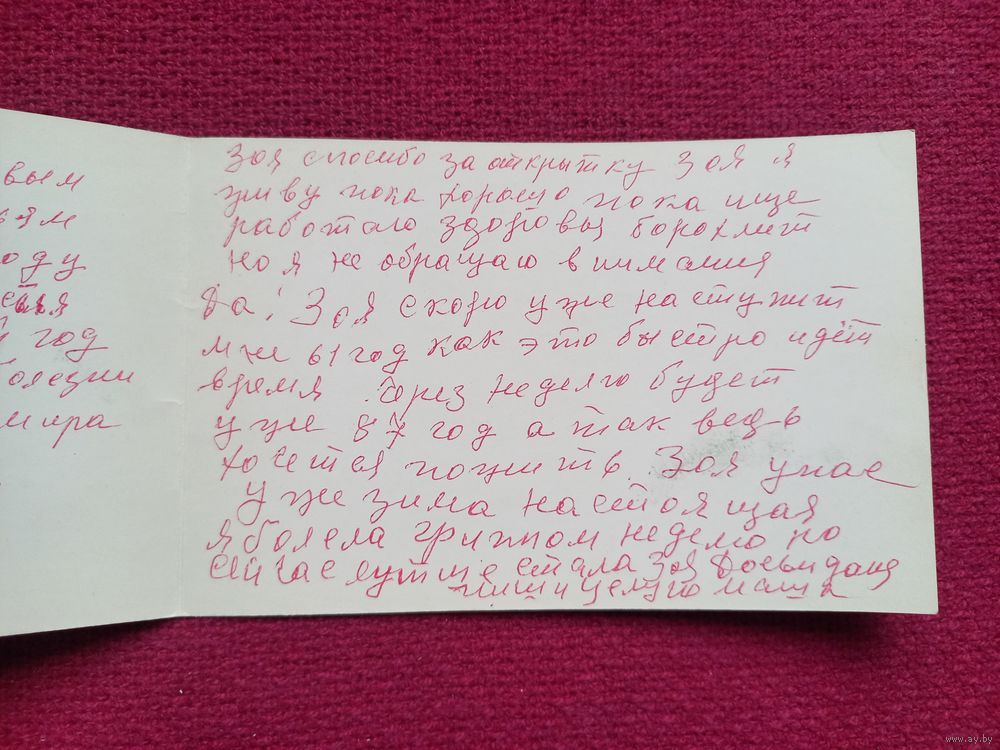 вым
ям
оду
я
год
олезни
мира
Зоя спосибо за открытку Зоя я
живу пока хорошо пока ище
работаю здоровья борохлит
но я не обращаю внимания
Да! Зоя скоро уже наступит
мне 61 год как это быстро идёт
время. Через неделю будет
уже 87 год а так ведь
хочется пожить. Зоя у нас
уже зима настоящая
я болела гриппом неделю но
сейчас лутще стала Зоя досвидания
пиши целую маша
www.ay.by